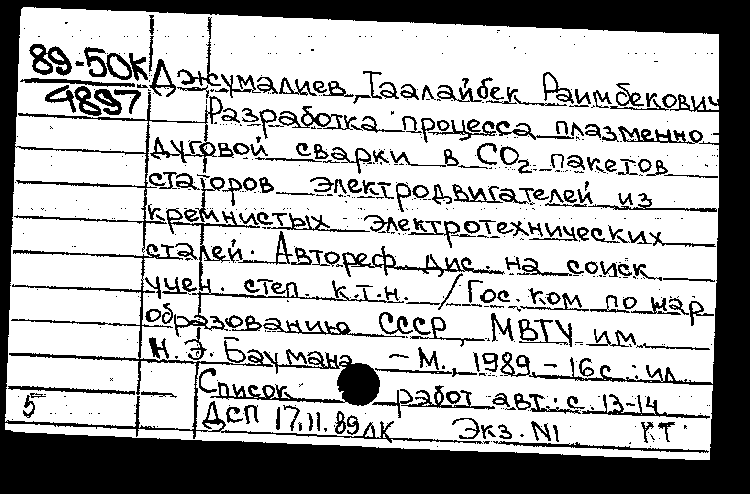 89-50К
4897
Джумалиев, Таалайбек Раимбекович
Разработка процесса плазменно-
дуговой сварки в CO₂ пакетов
статоров электродвигателей из
кремнистых электротехнических
сталей. Автореф. дис. на соиск
учен. степ. к.т.н. / Гос. ком по нар
образованию СССР, МВТУ им.
Н. Э. Баумана. - М., 1989. - 16 с.: ил.
Список работ авт.: с. 13-14
5
ДСП 17.11.89 ЛК Экз. N1 КТ